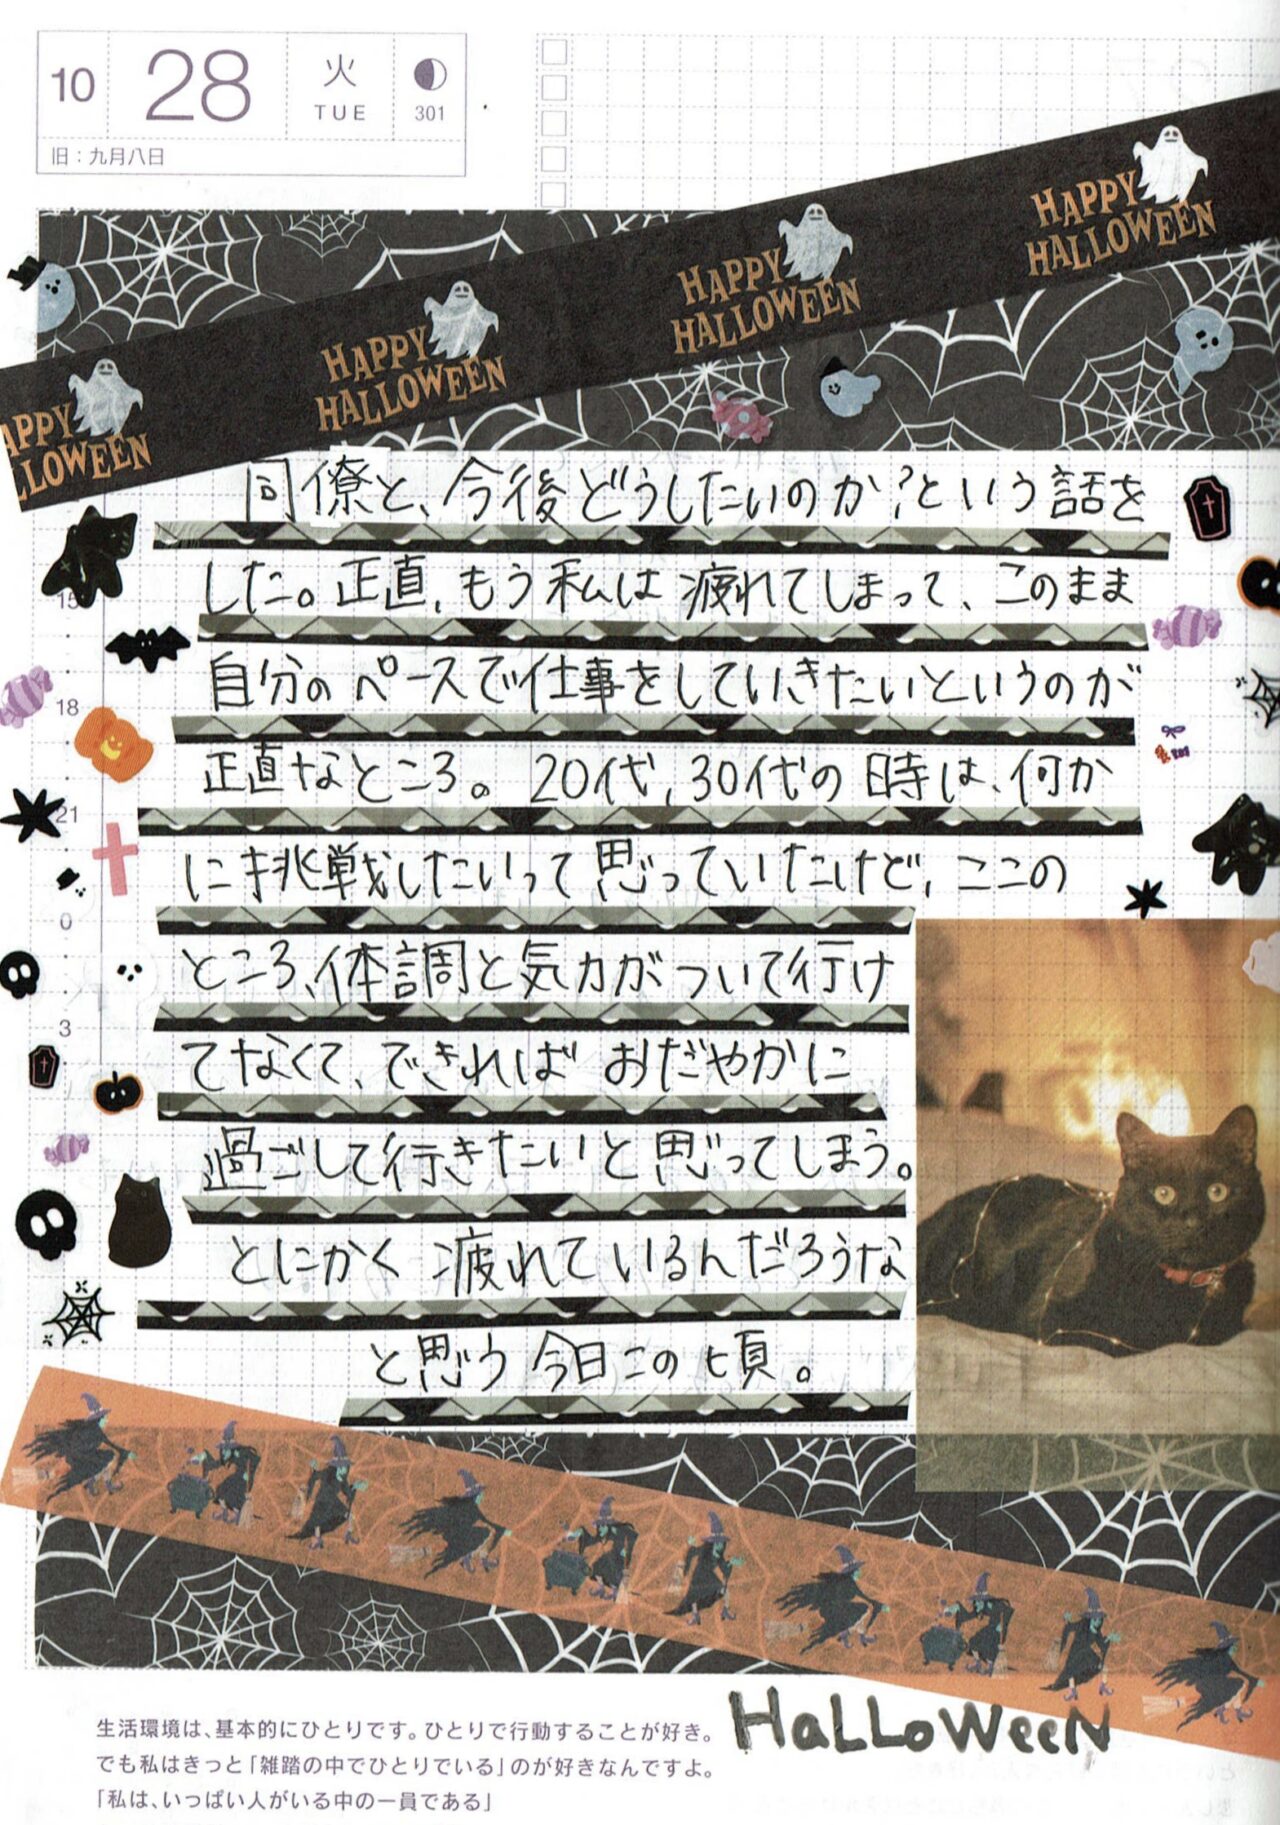 10
28
火
TUE
301
旧：九月八日
HAPPY
HALLOWEEN
HAPPY
HALLOWEEN
HAPPY
HALLOWEEN
APPY
LLOWEEN
同僚と、今後どうしたいのか？という話を
した。正直、もう私は疲れてしまって、このまま
自分のペースで仕事をしていきたいというのが
正直なところ。20代、30代の時は、何か
に挑戦したいって思っていたけど、ここの
ところ、体調と気力がついて行け
てなくて、できればおだやかに
過ごして行きたいと思ってしまう。
とにかく疲れているんだろうな
と思う今日この頃。
15
18
21
0
3
HaLLoWeeN
生活環境は、基本的にひとりです。ひとりで行動することが好き。
でも私はきっと「雑踏の中でひとりでいる」のが好きなんですよ。
「私は、いっぱい人がいる中の一員である」